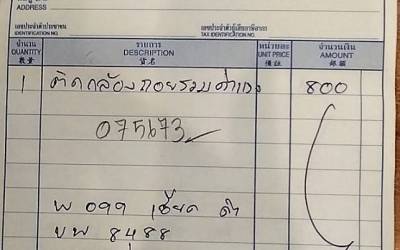 ADDRESS
เลขประจำตัวประชาชน เลขประจำตัวผู้เสียภาษีอากร
IDENTIFICATION NO. TAX IDENTIFICATION NO.
จำนวน รายการ หน่วยละ จำนวนเงิน
QUANTITY DESCRIPTION UNIT PRICE AMOUNT
數量 貨名 價銀
1 ติดกล้องถอยรวมค่าแรง 800
075673
8488